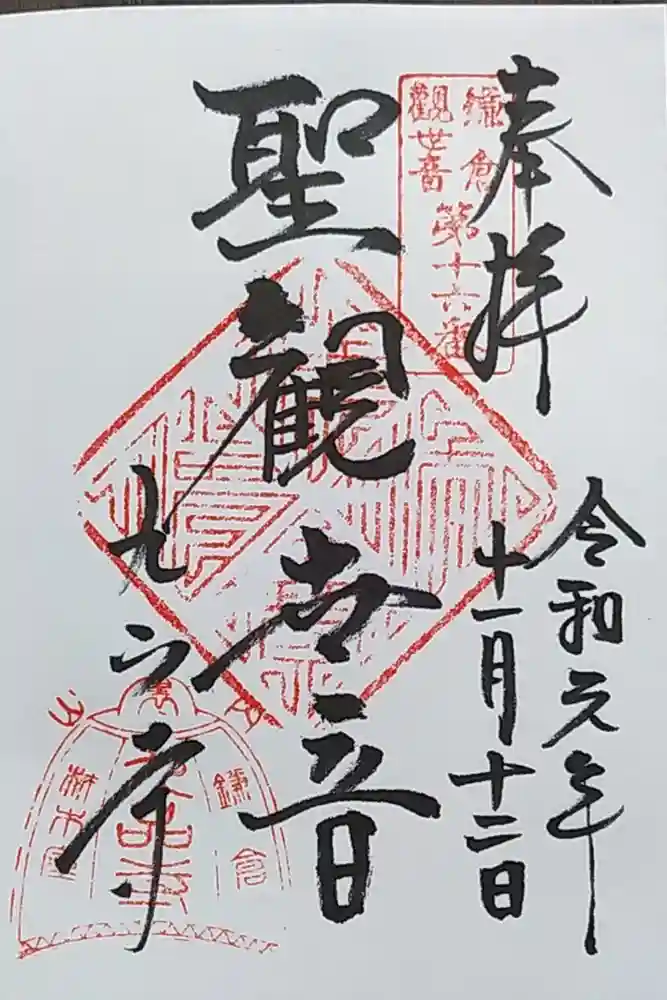 奉拝
令和元年
十一月十二日
鎌倉
觀世音
第十六番
聖觀世音
九品寺
鎌倉